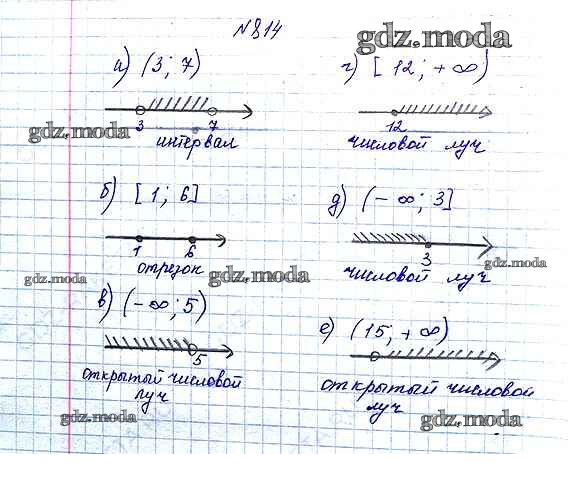 №814
gdz.moda
а) (3; 7)
3 7
интервал
gdz.moda
б) [1; 6]
1 6
отрезок
gdz.moda
в) (-∞; 5)
5
открытый числовой
луч
gdz.moda
г) [12; +∞)
12
числовой луч
gdz.moda
д) (-∞; 3]
3
числовой луч
gdz.moda
е) (15, +∞)
открытый числовой
луч
gdz.moda